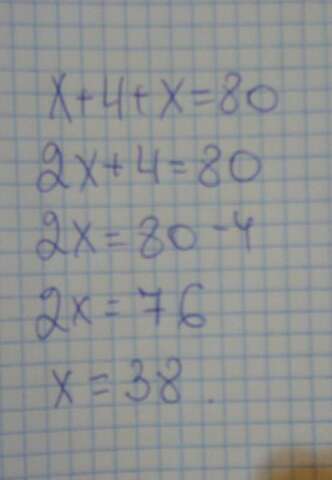 x+4+x=80
2x+4=80
2x=80-4
2x=76
x=38.